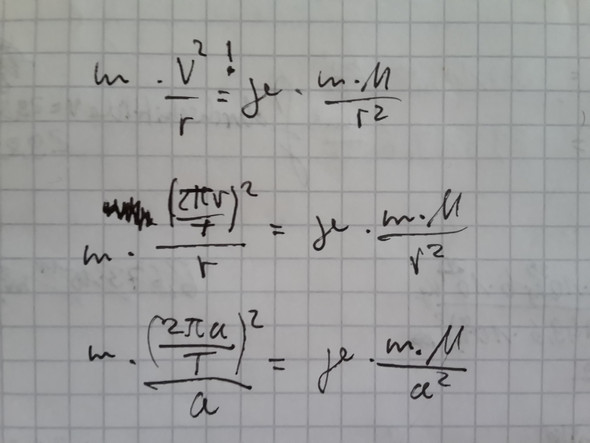 m · V²/r =! γ · m·M/r²
m · (2πr/T)²/r = γ · m·M/r²
m · (2πa/T)²/a = γ · m·M/a²